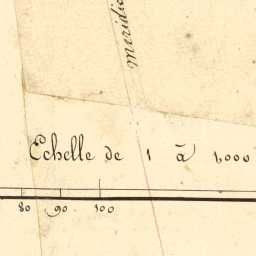 meridie
Echelle de 1 à 1000
80 90 100